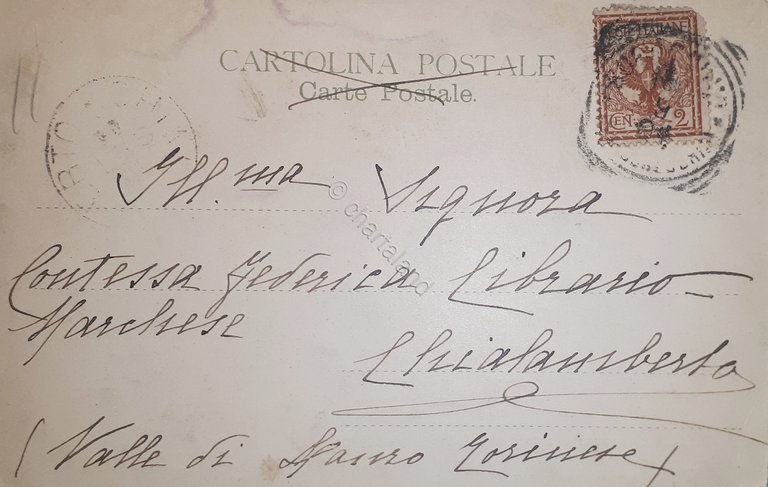 CARTOLINA POSTALE
Carte Postale.
POSTE ITALIANE
CEN. 2
Ill.ma Signora
Contessa Federica Cibrario-
Marchese
Chialamberto
(Valle di Lanzo Torinese)
© chartaland